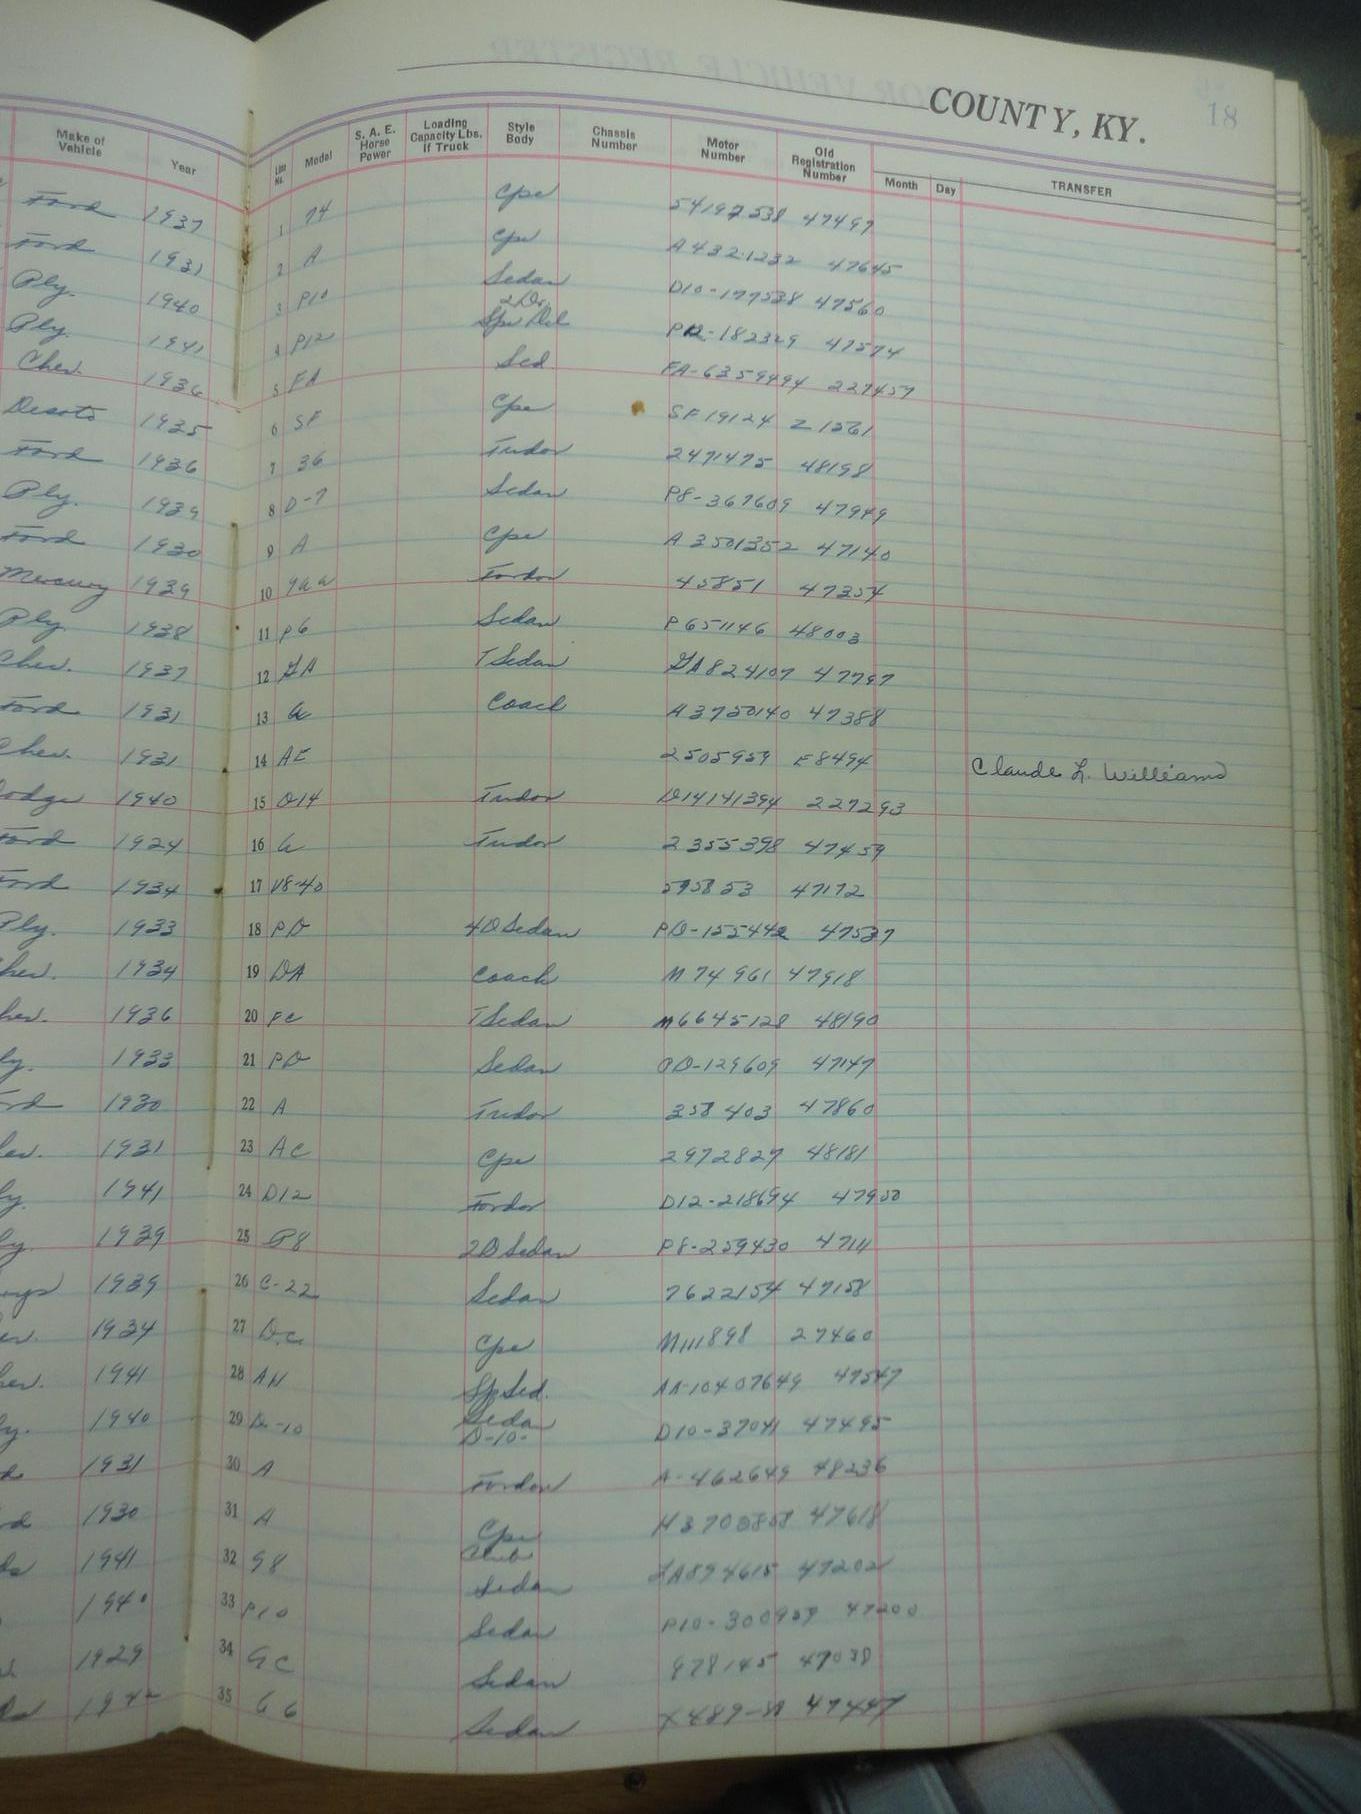 COUNTY, KY. 18
Make of Vehicle Year Line No. Model S. A. E. Horse Power Loading Capacity Lbs. If Truck Style Body Chassis Number Motor Number Old Registration Number Month Day TRANSFER
Ford 1937 1 74 Cpe 47497
Ford 1931 2 A Cpe A4321232 47645
Ply. 1940 3 P10 Sedan 2 Dr. D10-177538 47560
Ply. 1941 4 P12 Spe Del P12-182329 47574
Chev. 1936 5 FA Sed. FA-6359494 227457
Desoto 1935 6 SF Cpe SF19124 Z1561
Ford 1936 7 36 Tudor 2471475 48198
Ply. 1939 8 D-7 Sedan P8-367609 47949
Ford 1930 9 A Cpe A3501352 47140
Mercury 1939 10 9aa Fordor 45851 47354
Ply 1938 11 P6 Sedan P651146 48003
Chev. 1937 12 GA T Sedan GA824107 47797
Ford 1931 13 a Coach A3750140 47388
Chev. 1931 14 AE 2505959 E8494 Claude L. Williams
odge 1940 15 D14 Tudor D14141394 227293
Ford 1924 16 a Tudor 2355398 47459
Ford 1934 17 V8-40 595853 47172
Ply. 1933 18 PD 4D Sedan 47537
hev. 1934 19 DA Coach M74961 47918
hev. 1936 20 FC T Sedan M6645128 48190
ly. 1933 21 PD Sedan PD-129609 47147
rd 1930 22 A Tudor 358403 47860
ev. 1931 23 AC Cpe 2972827 48181
ly. 1941 24 D12 Fordor D12-218694 47950
ly. 1939 25 P8 2D Sedan P8-259430 4711
1939 26 C-22 Sedan 7622154 47158
er. 1934 27 D.C. Cpe M111898 27460
er. 1941 28 AH Sp Sed. AA-10407649 47547
y. 1940 29 D-10 Sedan D-10- D10-37041 47495
1931 30 A Fordor A-462649 48236
rd 1930 31 A Cpe 47618
ds 1941 32 98 Club Sedan 47202
1940 33 P10 Sedan 47200
1929 34 Sedan 978145 47038
35 66 Sedan 47447